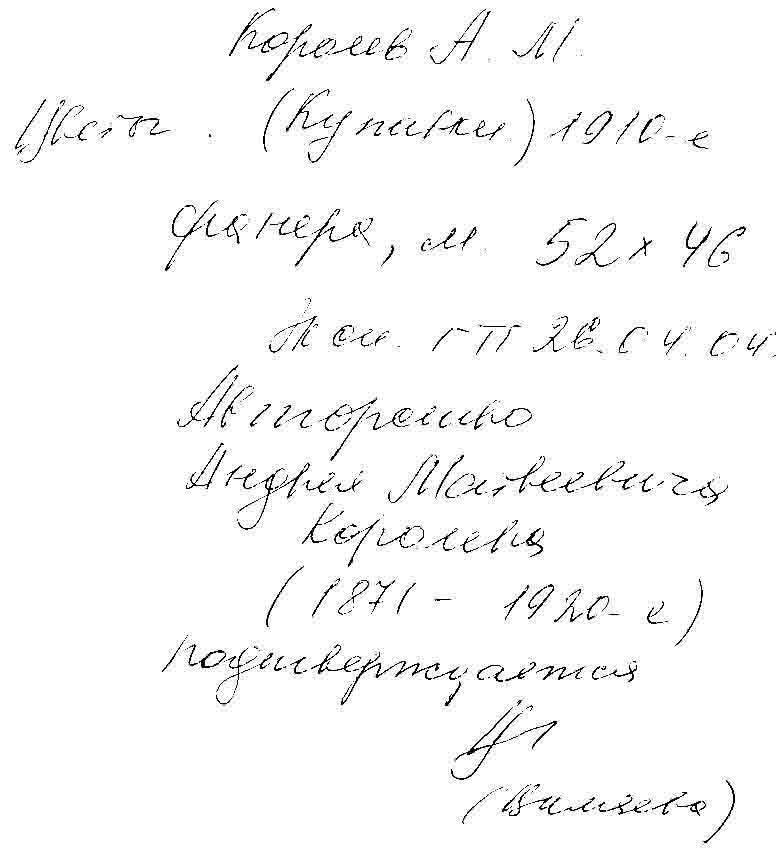 Королев А. М.
Цветы. (Купавки) 1910-е
фанера, м. 52 x 46
Эксп. ГТГ 26.04.04.
Авторство
Андрея Матвеевича
Королева
(1871 - 1920-е)
подтверждается